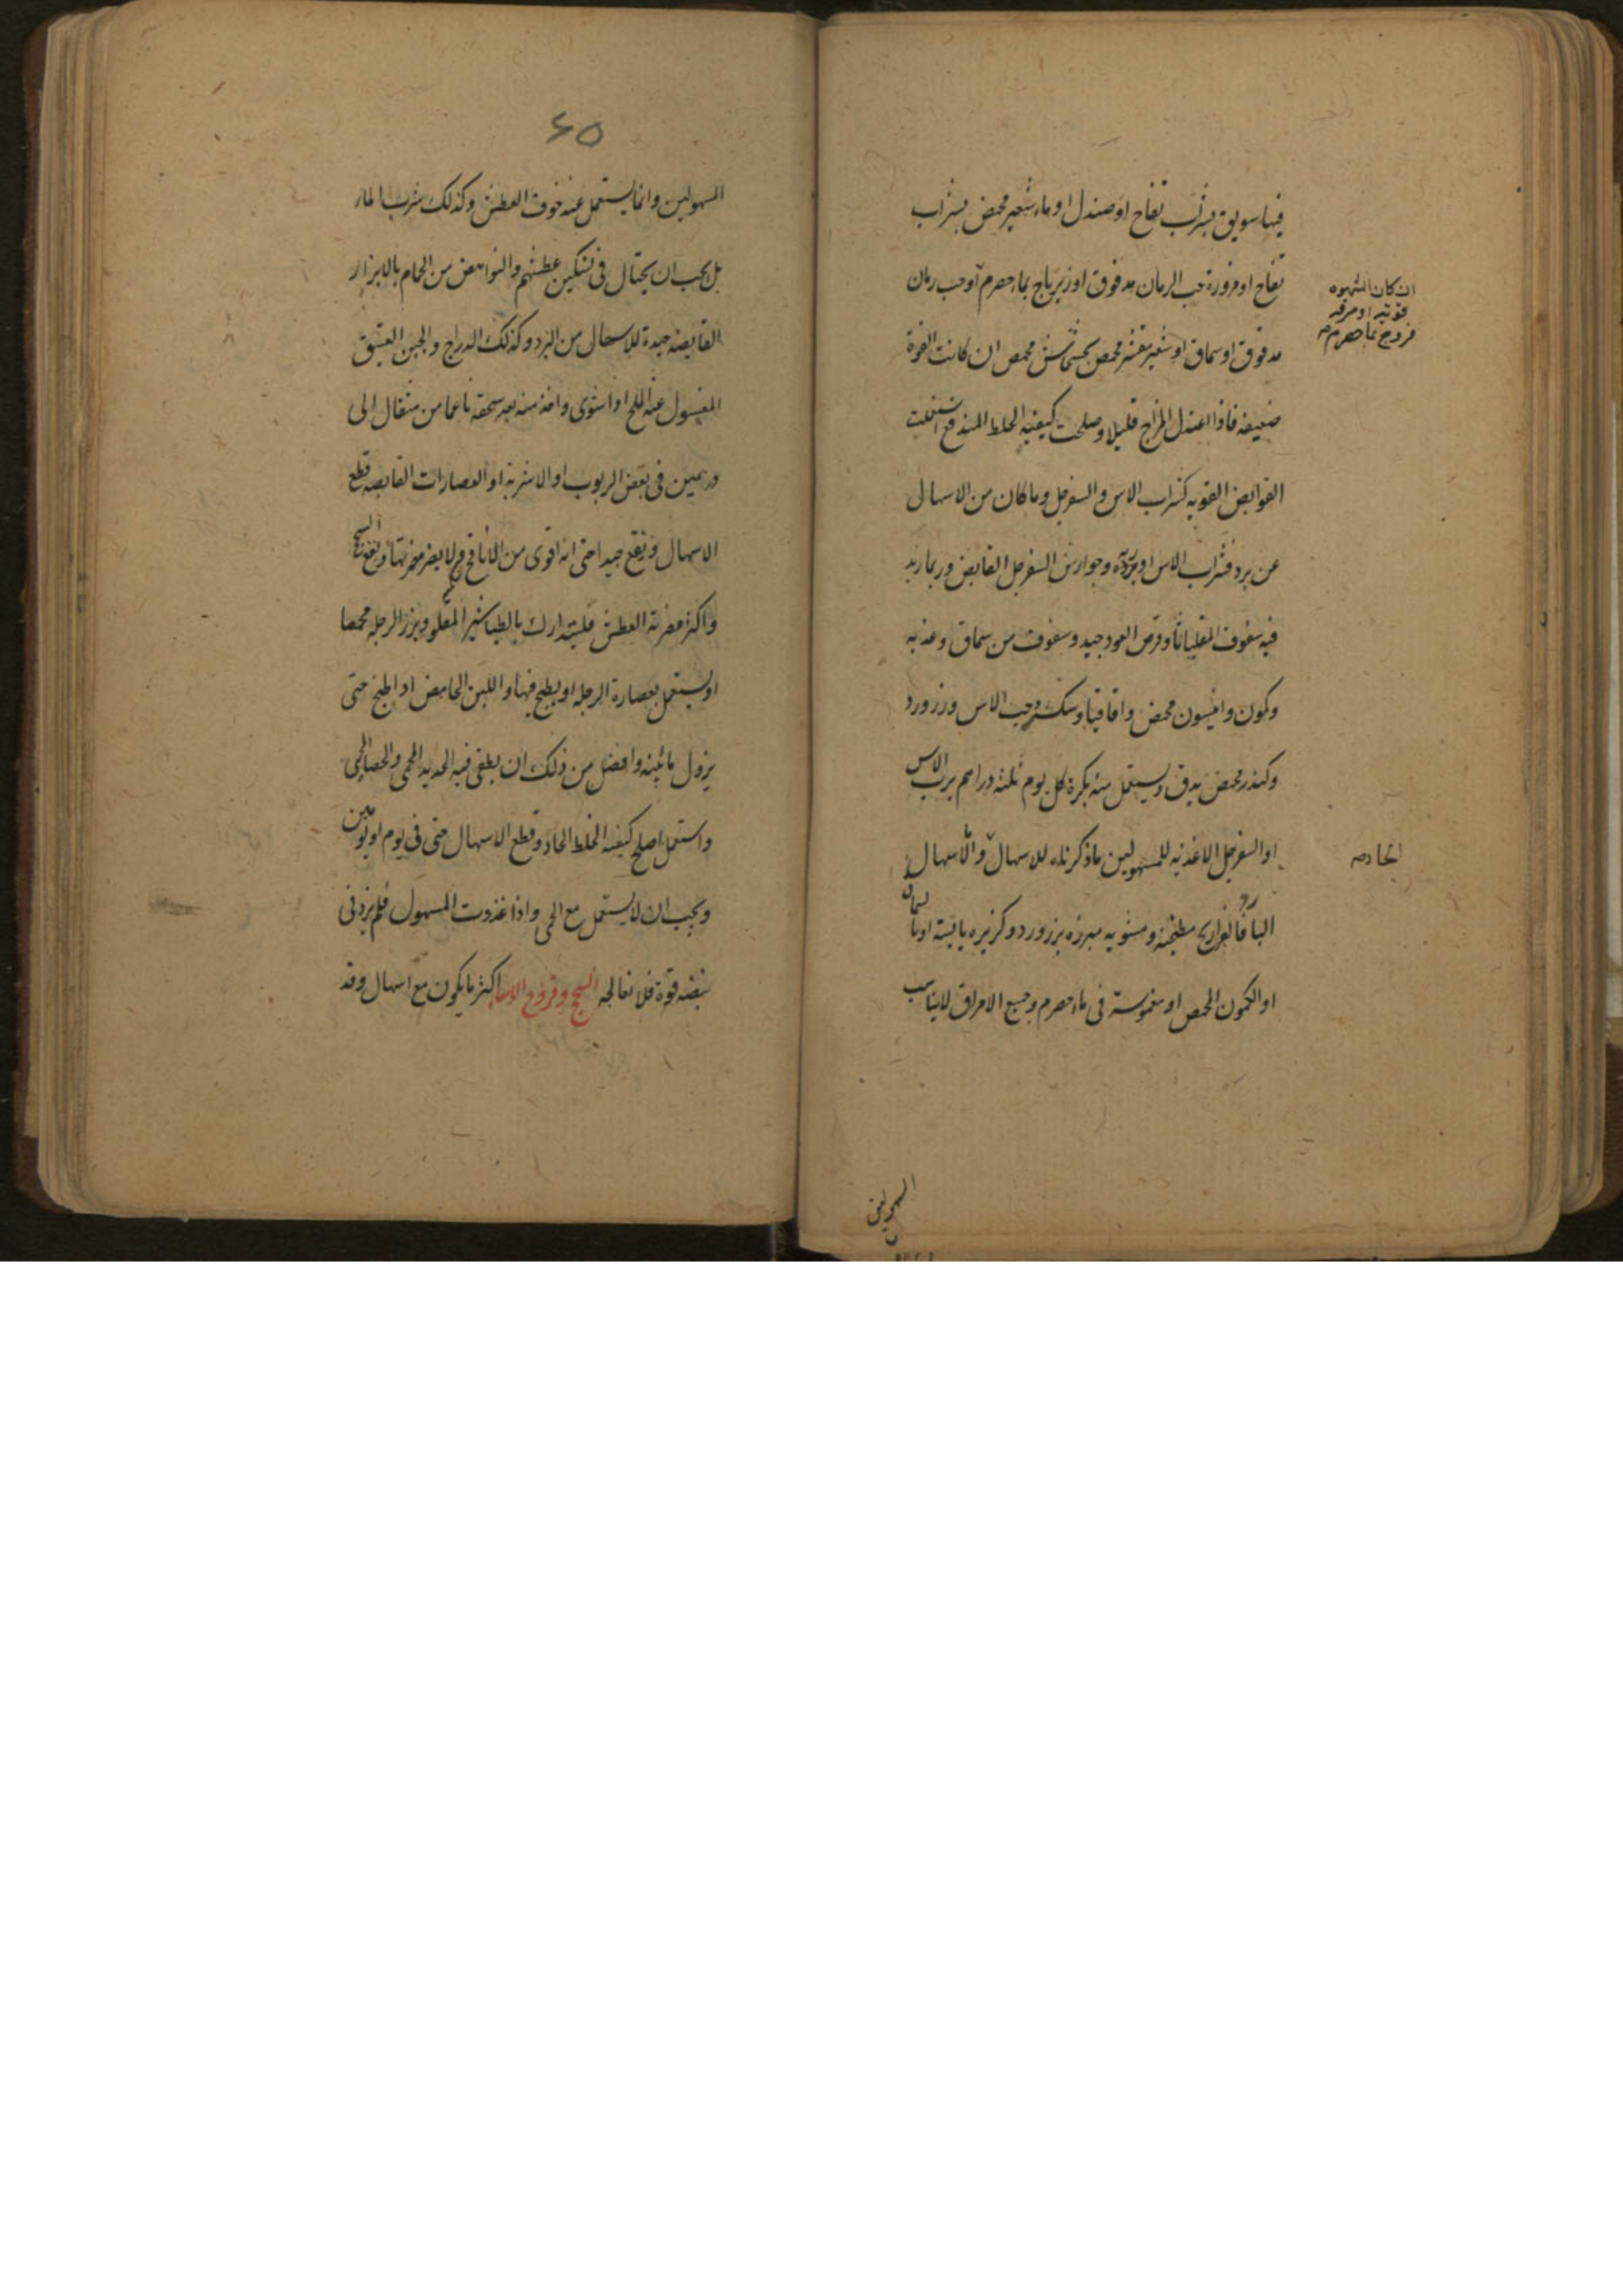 فيها سويق بشراب تفاح او صندل او ماء شعير محمض بشراب
تفاح او مزورة حب الرمان مدقوق او زيرباج بماء حصرم او حب رمان
ان كان الشهوه
قويه او مرقه
فروج بماء حصرم صح
مدقوق او سماق او شعير مقشر محمص بخشخاش محمص ان كانت القوة
ضعيفه فاذا اعتدل المزاج قليلا وصلحت كيفيه الخلط المندفع استعملت
القوابض القويه كشراب الاس والسفرجل وما كان من الاسهال
عن برد فشراب الاس او وجوارش السفرجل القابض وربما زيد
فيه سفوف المقلياثا وقرص العود جيد وسفوف من سماق وعذبه
وكمون وانيسون محمص واقاقيا وسك وحب الاس وزر ورد
وكندر محمص يدق ويستعمل منه بكرة كل يوم ثلثه دراهم برب الاس
او السفرجل الاغذيه للمسهولين ما ذكرناه للاسهال والاسهال
الحاد صح
البارد فالفراريج مطجنه ومشويه مبرزه بزر ورد وكزبره يابسة او بالسماق
او الكمون المحمص او مغموسة في ماء حصرم وجميع الامراق لا يناسب
المسهولين
٦٥
المسهولين وانما يستعمل عند خوف العطش وكذلك شرب الماء
بل يجب ان يحتال في تسكين عطشهم والنواهض من الحمام بالابزار
القابضه جيدة للاسهال من البرد وكذلك الدراج والجبن العتيق
المغسول عنه الملح اذا شوى واخذ منه بعد سحقه ناعما من مثقال الى
درهمين في بعض الربوب او الاشربة او العصارات القابضه قطع
الاسهال ونفع جيدا حتى انه اقوى من الانافح ولا يضر مضرتها ونفع السحج
واكثر مضرته العطش فليتدارك بالطباشير المقلو وبزر الرجله محمصا
او يستعمل بعصارة الرجله او يطبخ فيها واللبن الحامض اذا طبخ حتى
يزول مائيته وافضل من ذلك ان يطفى فيه الحديد المحمى والحصا المحمى
واستعمل اصلح كيفيه الخلط الحاد وقطع الاسهال حتى في يوم او يومين
ويجب ان لا يستعمل مع الحمى واذا غذوت المسهول فلم يزد في
نبضه قوة فلا تعالجه السحج وقروح الامعا اكثر ما يكون مع اسهال وقد